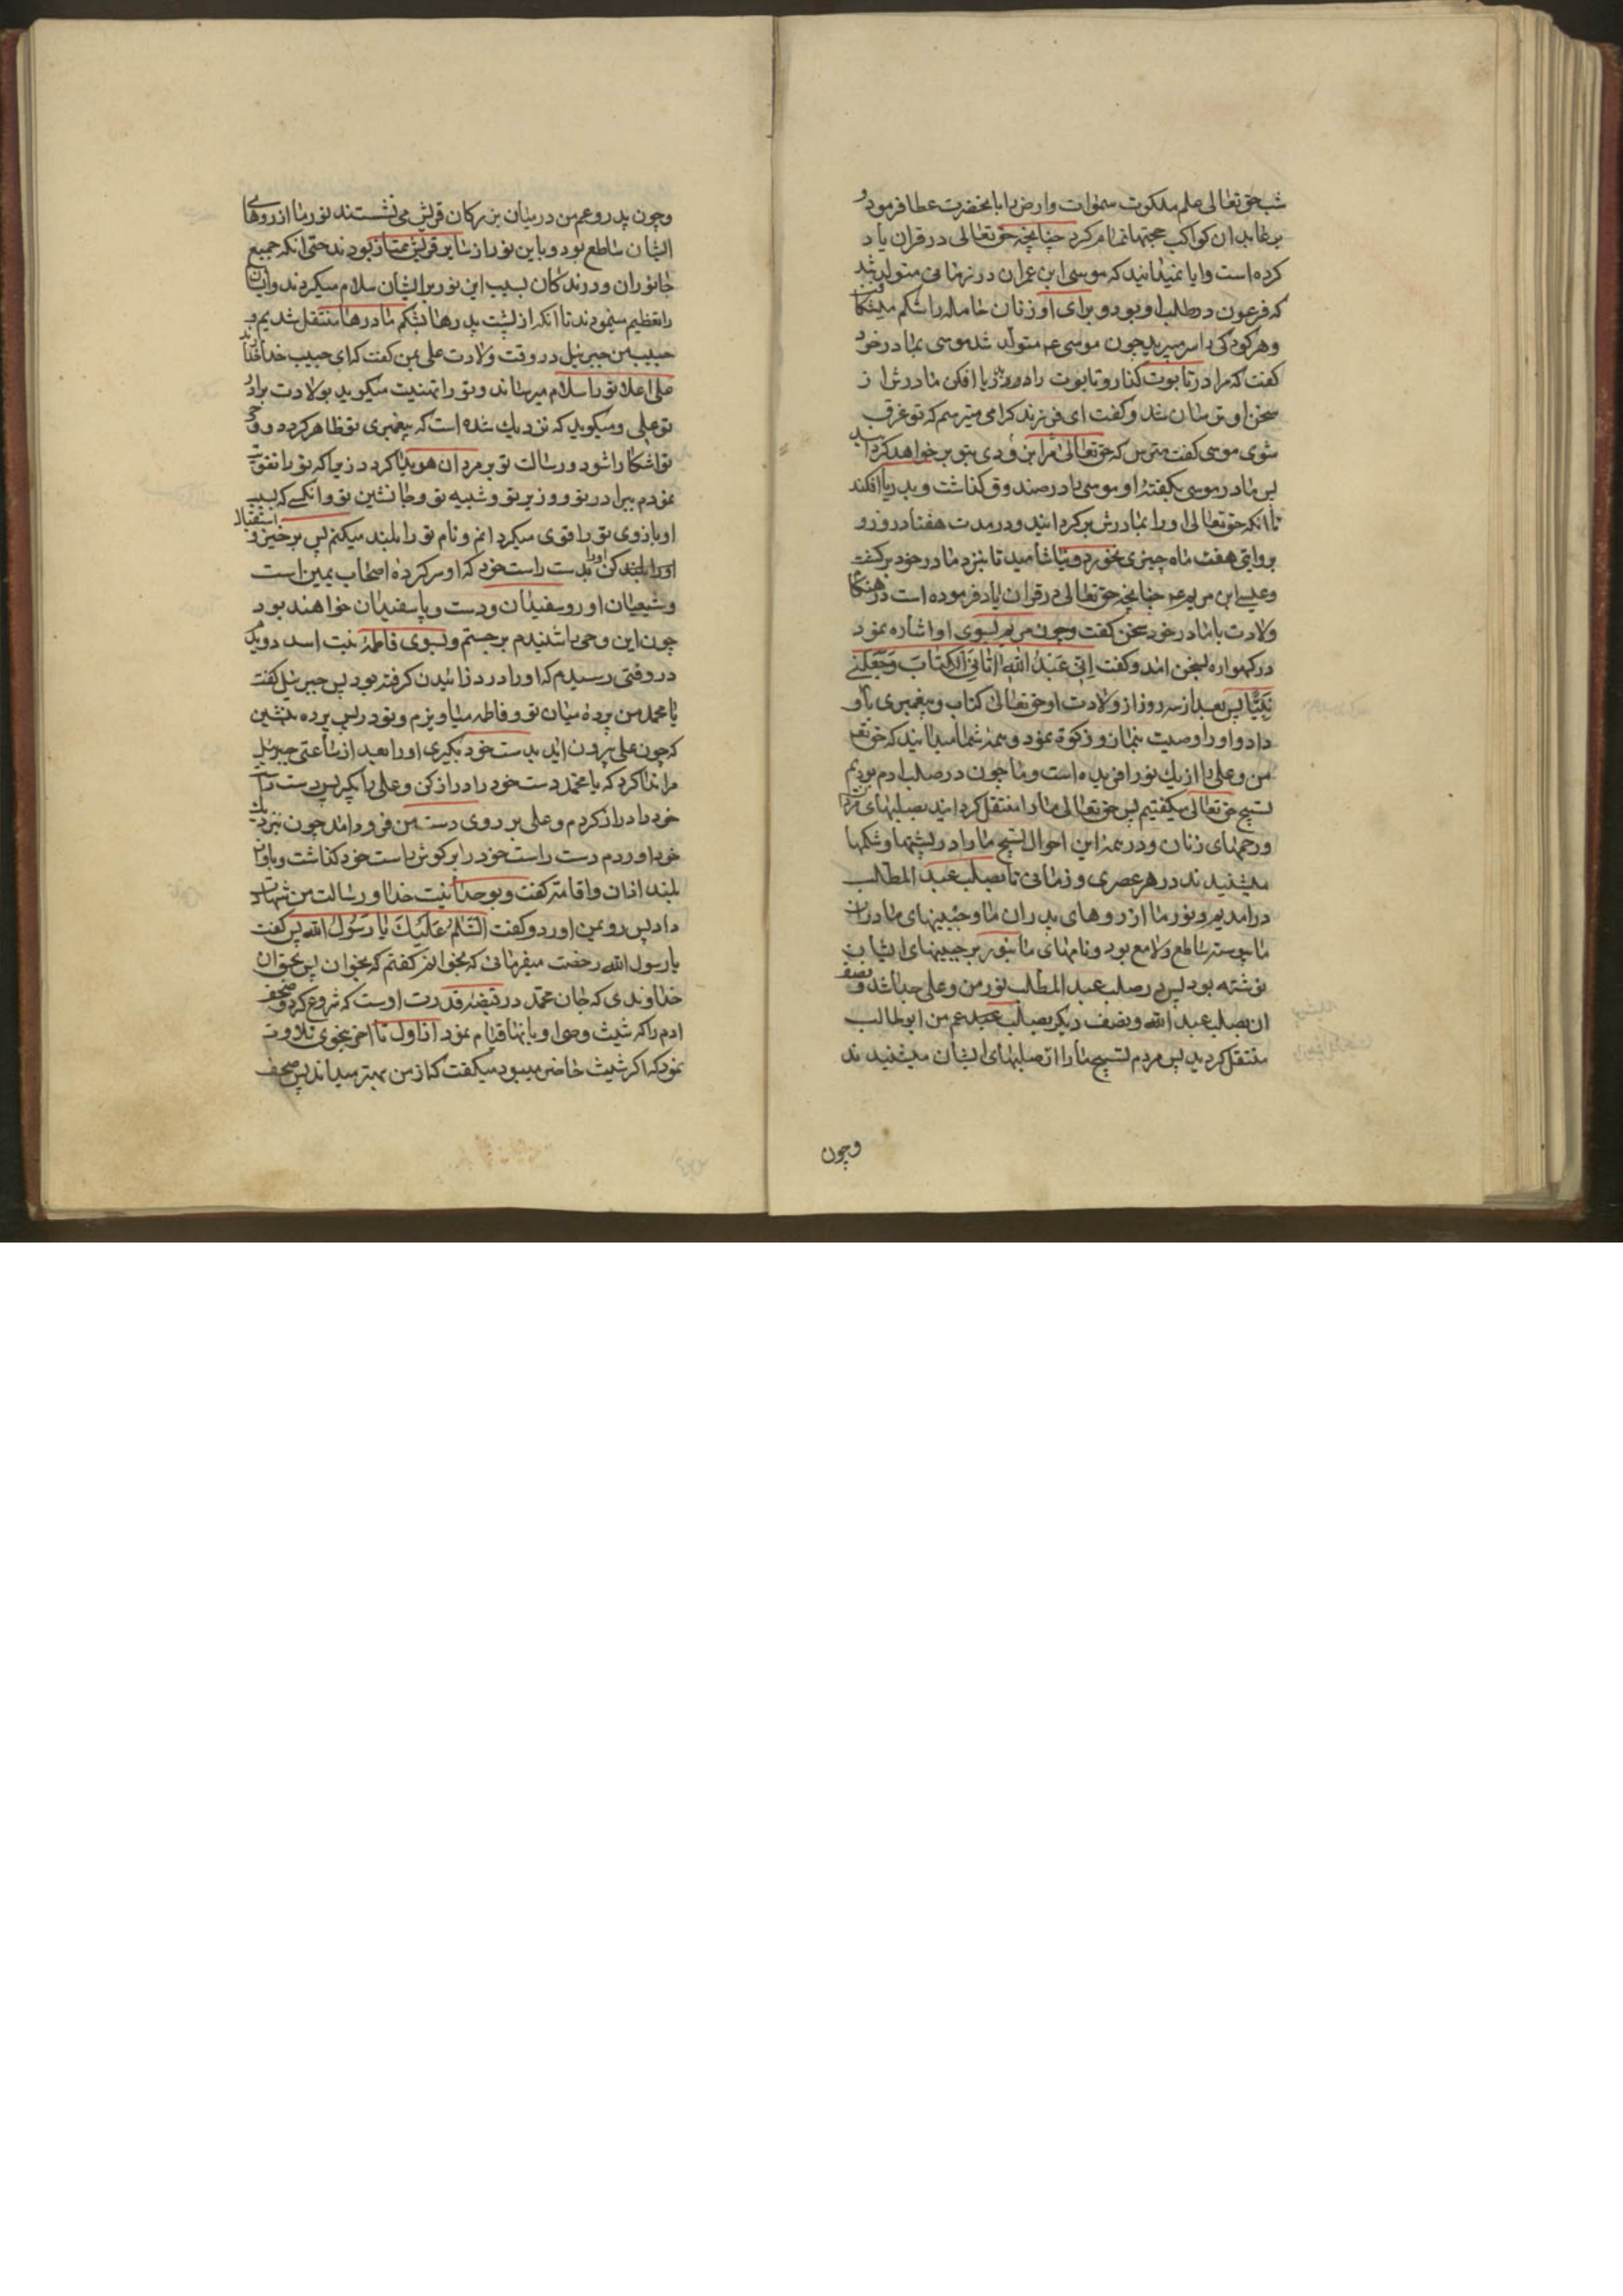 شب حق تعالی علم ملکوت سموات وارض را بانحضرت عطا فرمود و
بر عابدان کواکب حجتها تمام کرد چنانچه حق تعالی در قران یاد
کرده است وایا نمیدانید که موسی ابن عمران در زمانی متولد شد
که فرعون در طلب او بود و برای او زنان حامله را شکم میشکافت
وهر کودکی را سر میبرید چون موسی عم متولد شد موسی بمادر خود
کفت که مرا در تابوت کذار و تابوت را در دریا افکن مادرش از
سخن او ترسان شد وکفت ای فرزند کرامی میترسم که تو غرق
شوی موسی کفت مترس که حق تعالی مرا بزودی بتو بر خواهد کردانید
پس مادر موسی بکفته او موسی را در صندوق کذاشت وبدریا افکند
تا انکه حق تعالی او را بمادرش بر کردانید ودر مدت هفتاد روز و
بروایتی هفت ماه چیزی نخورد و نیاشامید تا بنزد مادر خود برکشت
وعیسی ابن مریم عم چنانچه حق تعالی در قران یاد فرموده است در هنکام
ولادت با مادر خود سخن کفت وچون مریم بسوی او اشاره نمود
در کهواره بسخن امد وکفت اِنّی عَبْدُ اللّهِ اٰتانِیَ الْکِتابَ وَجَعَلَنی
نَبِیًّا پس بعد از سه روز از ولادت او حق تعالی کتاب و پیغمبری باو
داد واو را وصیت بنماز و زکوة نمود و همه شما میدانید که حق تعم
من وعلی را از یک نور افریده است وما چون در صلب ادم بودیم
تسبیح حق تعالی میکفتیم پس حق تعالی ما را منتقل کردانید بصلبهای مردان
ورحمهای زنان ودر همه این احوال تسبیح ما را در پشتها وشکمها
میشنیدند در هر عصری و زمانی تا بصلب عبد المطلب
درامدیم ونور ما از روهای پدران ما وجبینهای مادران
ما پیوسته ساطع ولامع بود ونامهای ما بنور بر جبینهای ایشان
نوشته بود پس در صلب عبد المطلب نور من وعلی جدا شد ونصف
ان بصلب عبد الله ونصف دیکر بصلب عم من ابو طالب
منتقل کردید پس مردم تسبیح ما را از صلبهای ایشان میشنیدند
وچون
وچون پدر وعم من در میان بزرکان قریش می نشستند نور ما از روهای
ایشان ساطع بود وباین نور از سایر قریش ممتاز بودند حتی انکه جمیع
جانوران ودرندکان بسبب این نور بر ایشان سلام میکردند وایشان
را تعظیم مینمودند تا انکه از پشت پدرها بشکم مادرها منتقل شدیم و
حبیب من جبرئیل در وقت ولادت علی بمن کفت که ای حبیب خدا خداوند
علی اعلا تو را سلام میرساند وتو را تهنیت میکوید بولادت برادر
تو علی ومیکوید که نزدیک شده است که پیغمبری تو ظاهر کردد ووحی
تو اشکارا شود ورسالت تو بر مردان هویدا کردد زیرا که تو را تقویت
نمودم ببرادر تو ووزیر تو وشبیه تو وجانشین تو وانکسی که بسبب
او بازوی تو را قوی میکردانم ونام تو را بلند میکنم پس برخیز واستقبال
او را بلند کن او را بدست راست خود که او سر کرده اصحاب یمین است
وشیعیان او رو سفیدان ودست وپا سفیدان خواهند بود
چون این وحی را شنیدم برجستم وبسوی فاطمه بنت اسد دویدم
در وقتی رسیدم که او را درد زائیدن کرفته بود پس جبرئیل کفت
یا محمد من پرده میان تو وفاطمه میاویزم وتو در پس پرده بنشین
که چون علی بیرون اید بدست خود بکیری او را بعد از ساعتی جبرئیل
مرا ندا کرد که یا محمد دست خود را دراز کن وعلی را بکیر پس دست راست
خود را دراز کردم وعلی بر روی دست من فرود امد چون بنزدیک
خود اوردم دست راست خود را بر کوش راست خود کذاشت وباواز
بلند اذان واقامه کفت وبوحدانیت خدا ورسالت من شهادت
داد پس رو بمن اورد وکفت اَلسَّلامُ عَلَیْکَ یا رَسُولَ اللّه پس کفت
یا رسول الله رخصت میفرمائی که بخوانم کفتم که بخوان پس بحق ان
خداوندی که جان محمد در قبضه قدرت اوست که شروع کرد وصحف
ادم را که شیث وصی او بانها قیام نمود از اول تا اخر بنحوی تلاوت
نمود که اکر شیث حاضر میبود میکفت که از من بهتر میداند پس صحف